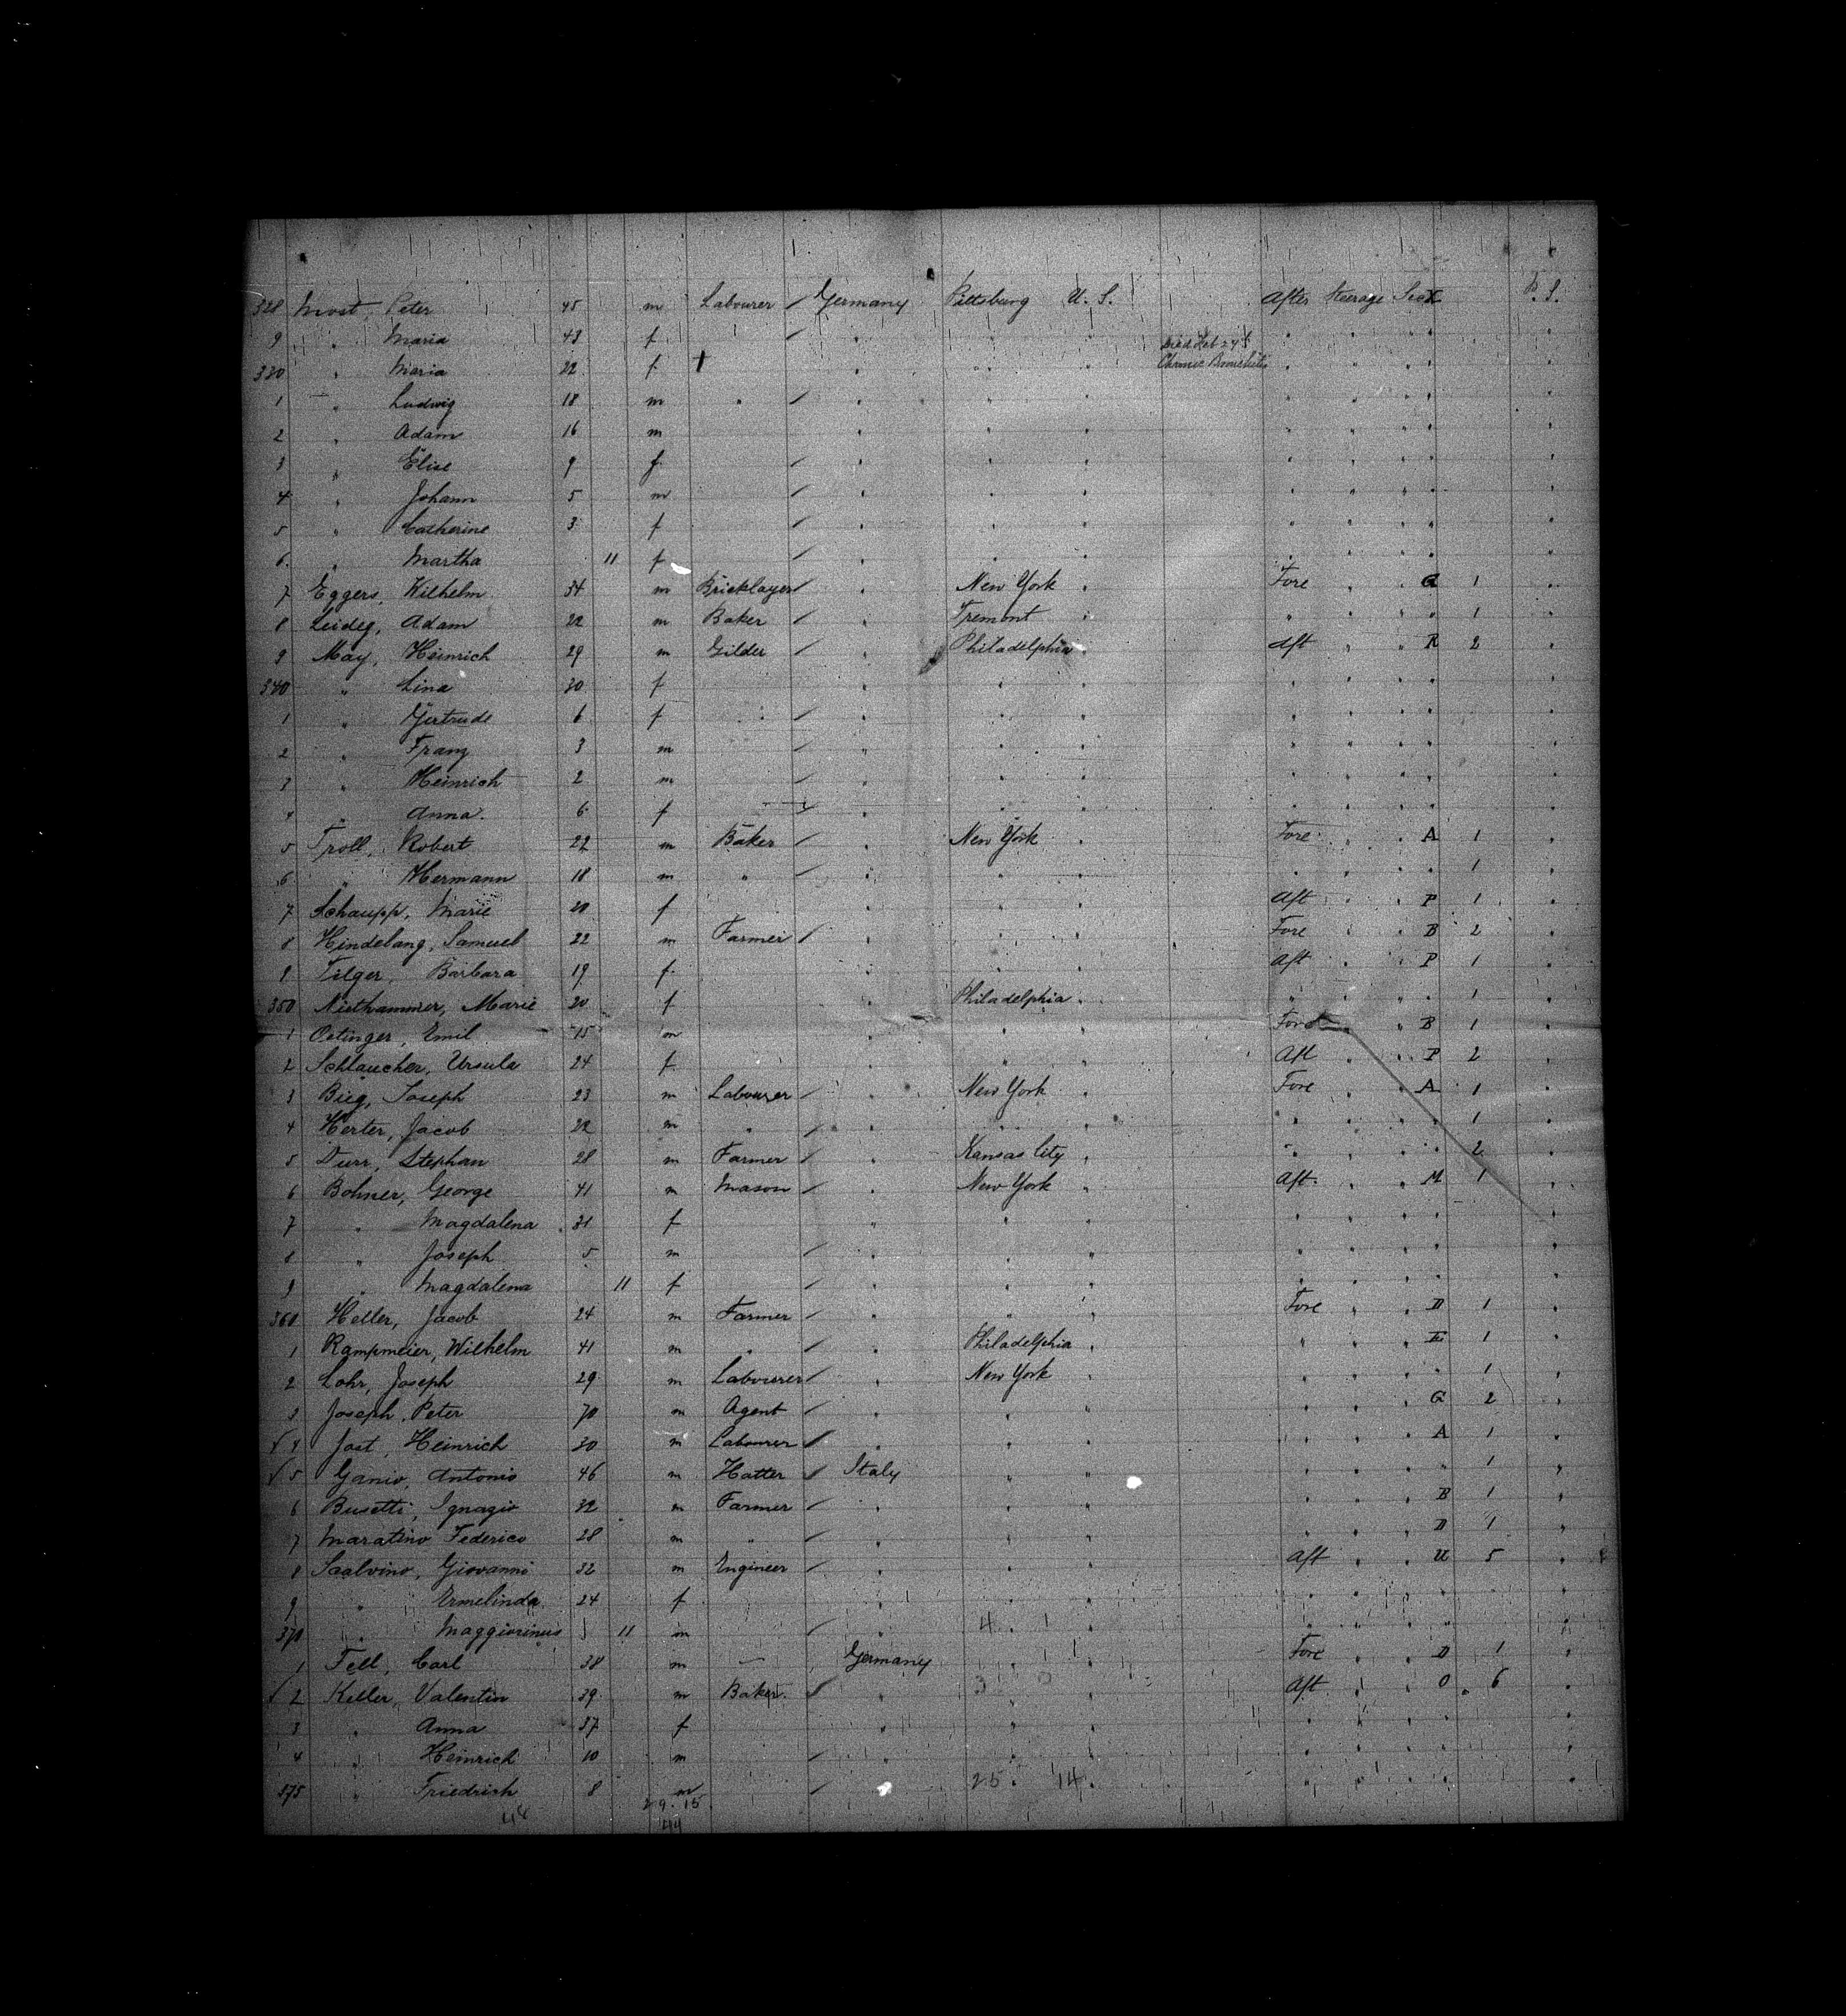 328 Most, Peter 45 m Labourer / Germany Pittsburg U. S. After Steerage Sec X P. S.
9 " Maria 43 f / " " " " " " "
Died Feb 24
330 " Maria 22 f " " " Chronic Bronchitis " " " " "
1 " Ludwig 18 m " / " " " " " " " "
2 " Adam 16 m " " " " " " " "
3 " Elise 9 f / " " " " " " " "
4 " Johann 5 m / " " " " " " " "
5 " Catherine 3 f / " " " " " " " "
6 " Martha 11 f / " " " " " " " "
7 Eggers, Wilhelm 34 m Bricklayer / " New York " Fore " " G 1 "
8 Leideg, Adam 22 m Baker / " Tremont " " " " " 1 "
9 May, Heinrich 29 m Gilder / " Philadelphia " Aft " " R 2 "
340 " Lina 30 f " " " " " " " "
1 " Gertrude 6 f / " " " " " " " "
2 " Franz 3 m / " " " " " " " "
3 " Heinrich 2 m / " " " " " " " "
4 " Anna 6 f / " " " " " " " "
5 Troll, Robert 22 m Baker / " New York " Fore " " A 1 "
6 " Hermann 18 m " / " " " " " " " 1 "
7 Schaupp, Marie 20 f " " " Aft " " P 1 "
8 Hindelang, Samuel 22 m Farmer / " " " Fore " " B 2 "
9 Tilger, Barbara 19 f " " " Aft " " P 1 "
350 Niethammer, Marie 20 f " Philadelphia " " " " " 1 "
1 Oetinger, Emil 15 m " " " Fore " " B 1 "
2 Schlaucher, Ursula 24 f " " " Aft " " P 2 "
3 Bieg, Joseph 23 m Labourer / " New York " Fore " " A 1 "
4 Herter, Jacob 22 m " / " " " " " " " 1 "
5 Durr, Stephan 28 m Farmer / " Kansas City " " " " " 2 "
6 Bohner, George 41 m Mason / " New York " Aft " " M 1 "
7 " Magdalena 31 f " " " " " " " "
8 " Joseph 5 m / " " " " " " " "
9 " Magdalena 11 f / " " " " " " " "
360 Heller, Jacob 24 m Farmer / " " " Fore " " D 1 "
1 Rampmeier, Wilhelm 41 m " / " Philadelphia " " " " E 1 "
2 Lohr, Joseph 29 m Labourer / " New York " " " " " 1 "
3 Joseph, Peter 70 m Agent / " " " " " " G 2 "
4 Jost, Heinrich 30 m Labourer / " " " " " " A 1 "
5 Ganio, Antonio 46 m Hatter / Italy " " " " " " 1 "
6 Busetti, Ignazio 32 m Farmer / " " " " " " B 1 "
7 Maratino Federico 28 m " / " " " " " " D 1 "
8 Scalvino, Giovanni 32 m Engineer / " " " Aft " " U 5 "
9 " Ermelinda 24 f " " " " " " " "
370 " Maggiorinus 11 m / " 4 1 " " " " "
1 Fell, Carl 38 m — Germany " " Fore " " D 1 "
2 Keller, Valentin 39 m Baker / " 3 0 Aft " " O 6 "
3 " Anna 37 f " " " " " " " "
4 " Heinrich 10 m / " " " " " " " "
375 " Friedrich 8 m / " 25 14 " " " " "
48 29.15
44